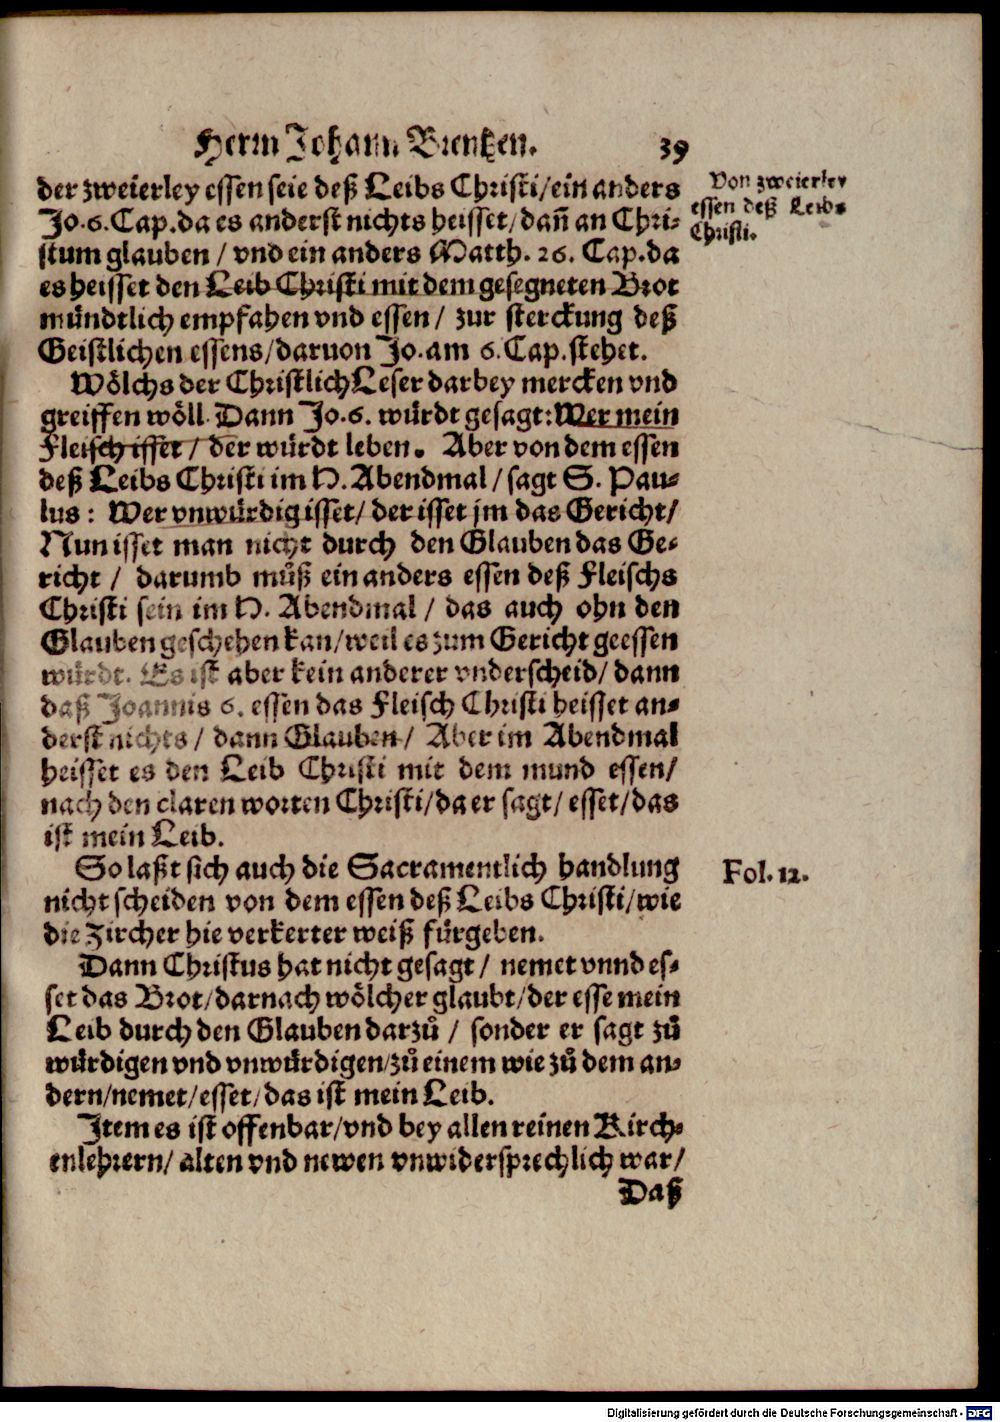 Herrn Johann Brentzen. 39
der zweierley essen seie deß Leibs Christi/ein anders
Jo.6.Cap.da es anderst nichts heisset/dañ an Chri-
stum glauben / vnd ein anders Matth. 26. Cap.da
es heisset den Leib Christi mit dem gesegneten Brot
mündtlich empfahen vnd essen / zur sterckung deß
Geistlichen essens/daruon Jo.am 6.Cap.stehet.
Von zweierley
essen deß Leibs
Christi.
Wölchs der Christlich Leser darbey mercken vnd
greiffen wöll. Dann Jo.6. würdt gesagt: Wer mein
Fleisch isset / der würdt leben. Aber von dem essen
deß Leibs Christi im H. Abendmal / sagt S. Pau-
lus : Wer vnwürdig isset/ der isset jm das Gericht/
Nun isset man nicht durch den Glauben das Ge-
richt / darumb muͦß ein anders essen deß Fleischs
Christi sein im H. Abendmal / das auch ohn den
Glauben geschehen kan/weil es zum Gericht geessen
würdt. Es ist aber kein anderer vnderscheid/ dann
daß Joannis 6. essen das Fleisch Christi heisset an-
derst nichts / dann Glauben / Aber im Abendmal
heisset es den Leib Christi mit dem mund essen/
nach den claren worten Christi/da er sagt/ esset/das
ist mein Leib.
So laßt sich auch die Sacramentlich handlung
nicht scheiden von dem essen deß Leibs Christi/wie
die Zircher hie verkerter weiß fürgeben.
Fol. 12.
Dann Christus hat nicht gesagt / nemet vnnd es-
set das Brot/darnach wölcher glaubt/der esse mein
Leib durch den Glauben darzuͦ / sonder er sagt zuͦ
würdigen vnd vnwürdigen/zuͦ einem wie zuͦ dem an-
dern/nemet/esset/das ist mein Leib.
Item es ist offenbar/vnd bey allen reinen Kirch-
enlehrern/ alten vnd newen vnwidersprechlich war/
Daß
Digitalisierung gefördert durch die Deutsche Forschungsgemeinschaft - DFG